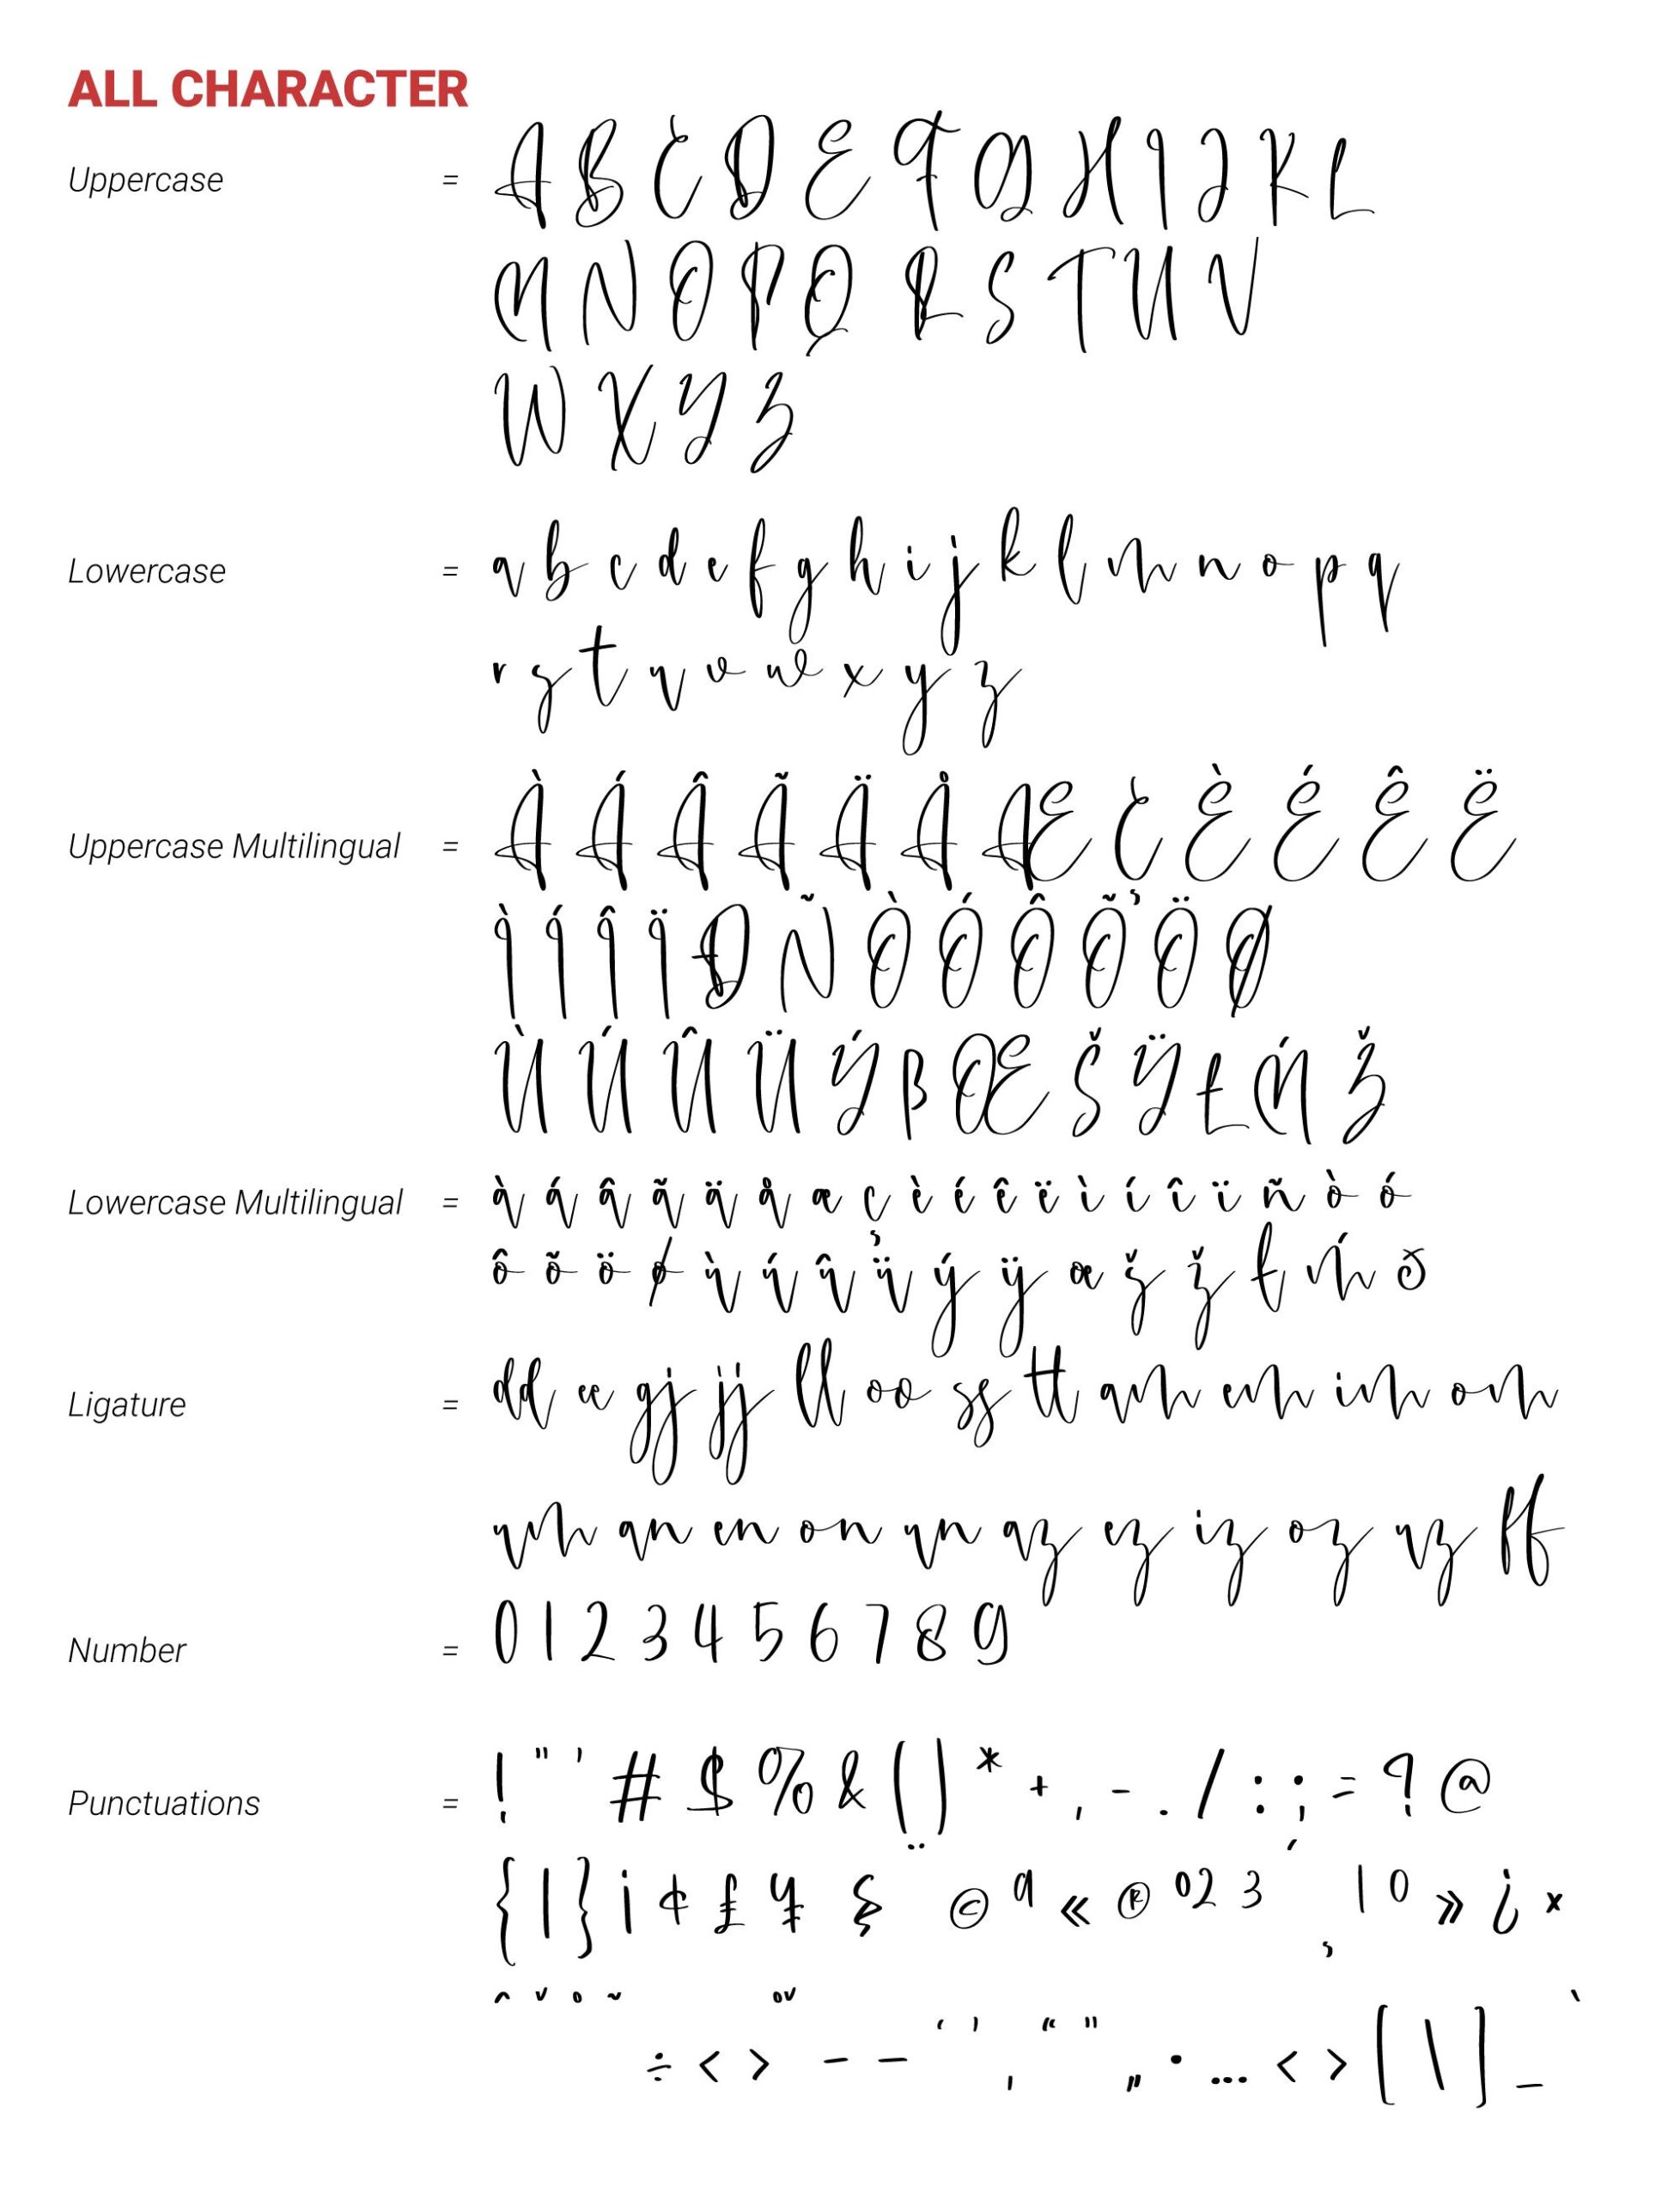 ALL CHARACTER
Uppercase = A B C D E F G H I J K L
M N O P Q R S T U V
W X Y Z
Lowercase = a b c d e f g h i j k l m n o p q
r s t u v w x y z
Uppercase Multilingual = À Á Â Ã Ä Å Æ Ç È É Ê Ë
Ì Í Î Ï Ð Ñ Ò Ó Ô Õ Ö Ø
Ù Ú Û Ü Ý ß Œ Š Ÿ Ł Ḿ Ž
Lowercase Multilingual = à á â ã ä å æ ç è é ê ë ì í î ï ñ ò ó
ô õ ö ø ù ú û ü ý ÿ œ š ž ł ḿ ð
Ligature = dd ee gj jj ll oo ss tt am em im om
um an en on un as es is os us ff
Number = 0 1 2 3 4 5 6 7 8 9
Punctuations = ! " ' # $ % & ( ) * + , - . / : ; = ? @
{ | } ¡ ¢ £ ¥ § ¨ © ª « ® º 2 3 ´ ¸ 1 0 » ¿ ×
ˆ ˇ ˚ ˜ ÷ < > – — ‘ ’ ‚ “ ” „ • … ‹ › [ \ ] _ `